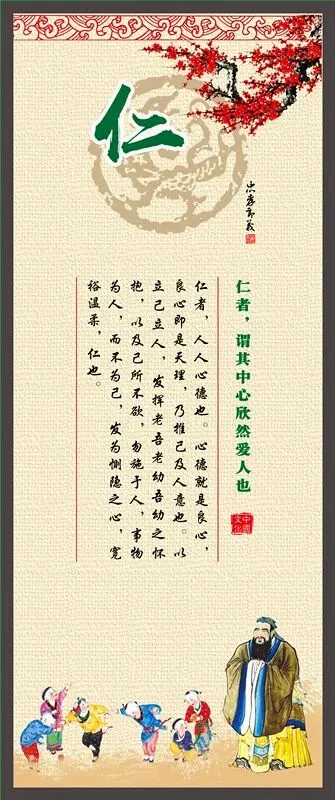 仁
忠孝节义
仁者，谓其中心欣然爱人也
中國文化
仁者，人人心德也。心德就是良心，
良心即是天理，乃推己及人意也。以
立己立人，发挥老吾老幼吾幼之怀
抱，以及己所不欲，勿施于人，事物
为人，而不为己，发为恻隐之心，宽
裕温柔，仁也。